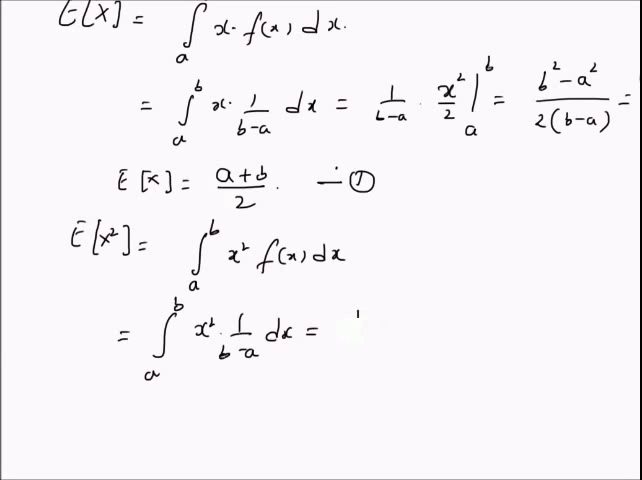 E[X] = ∫ₐ x. f(x) dx.
= ∫ₐᵇ x. 1/(b-a) dx = 1/(b-a) . x²/2 |ₐᵇ = (b²-a²)/(2(b-a)) =
E[x] = (a+b)/2. — ①
E[X²] = ∫ₐᵇ x² f(x) dx
= ∫ₐᵇ x². 1/(b-a) dx =